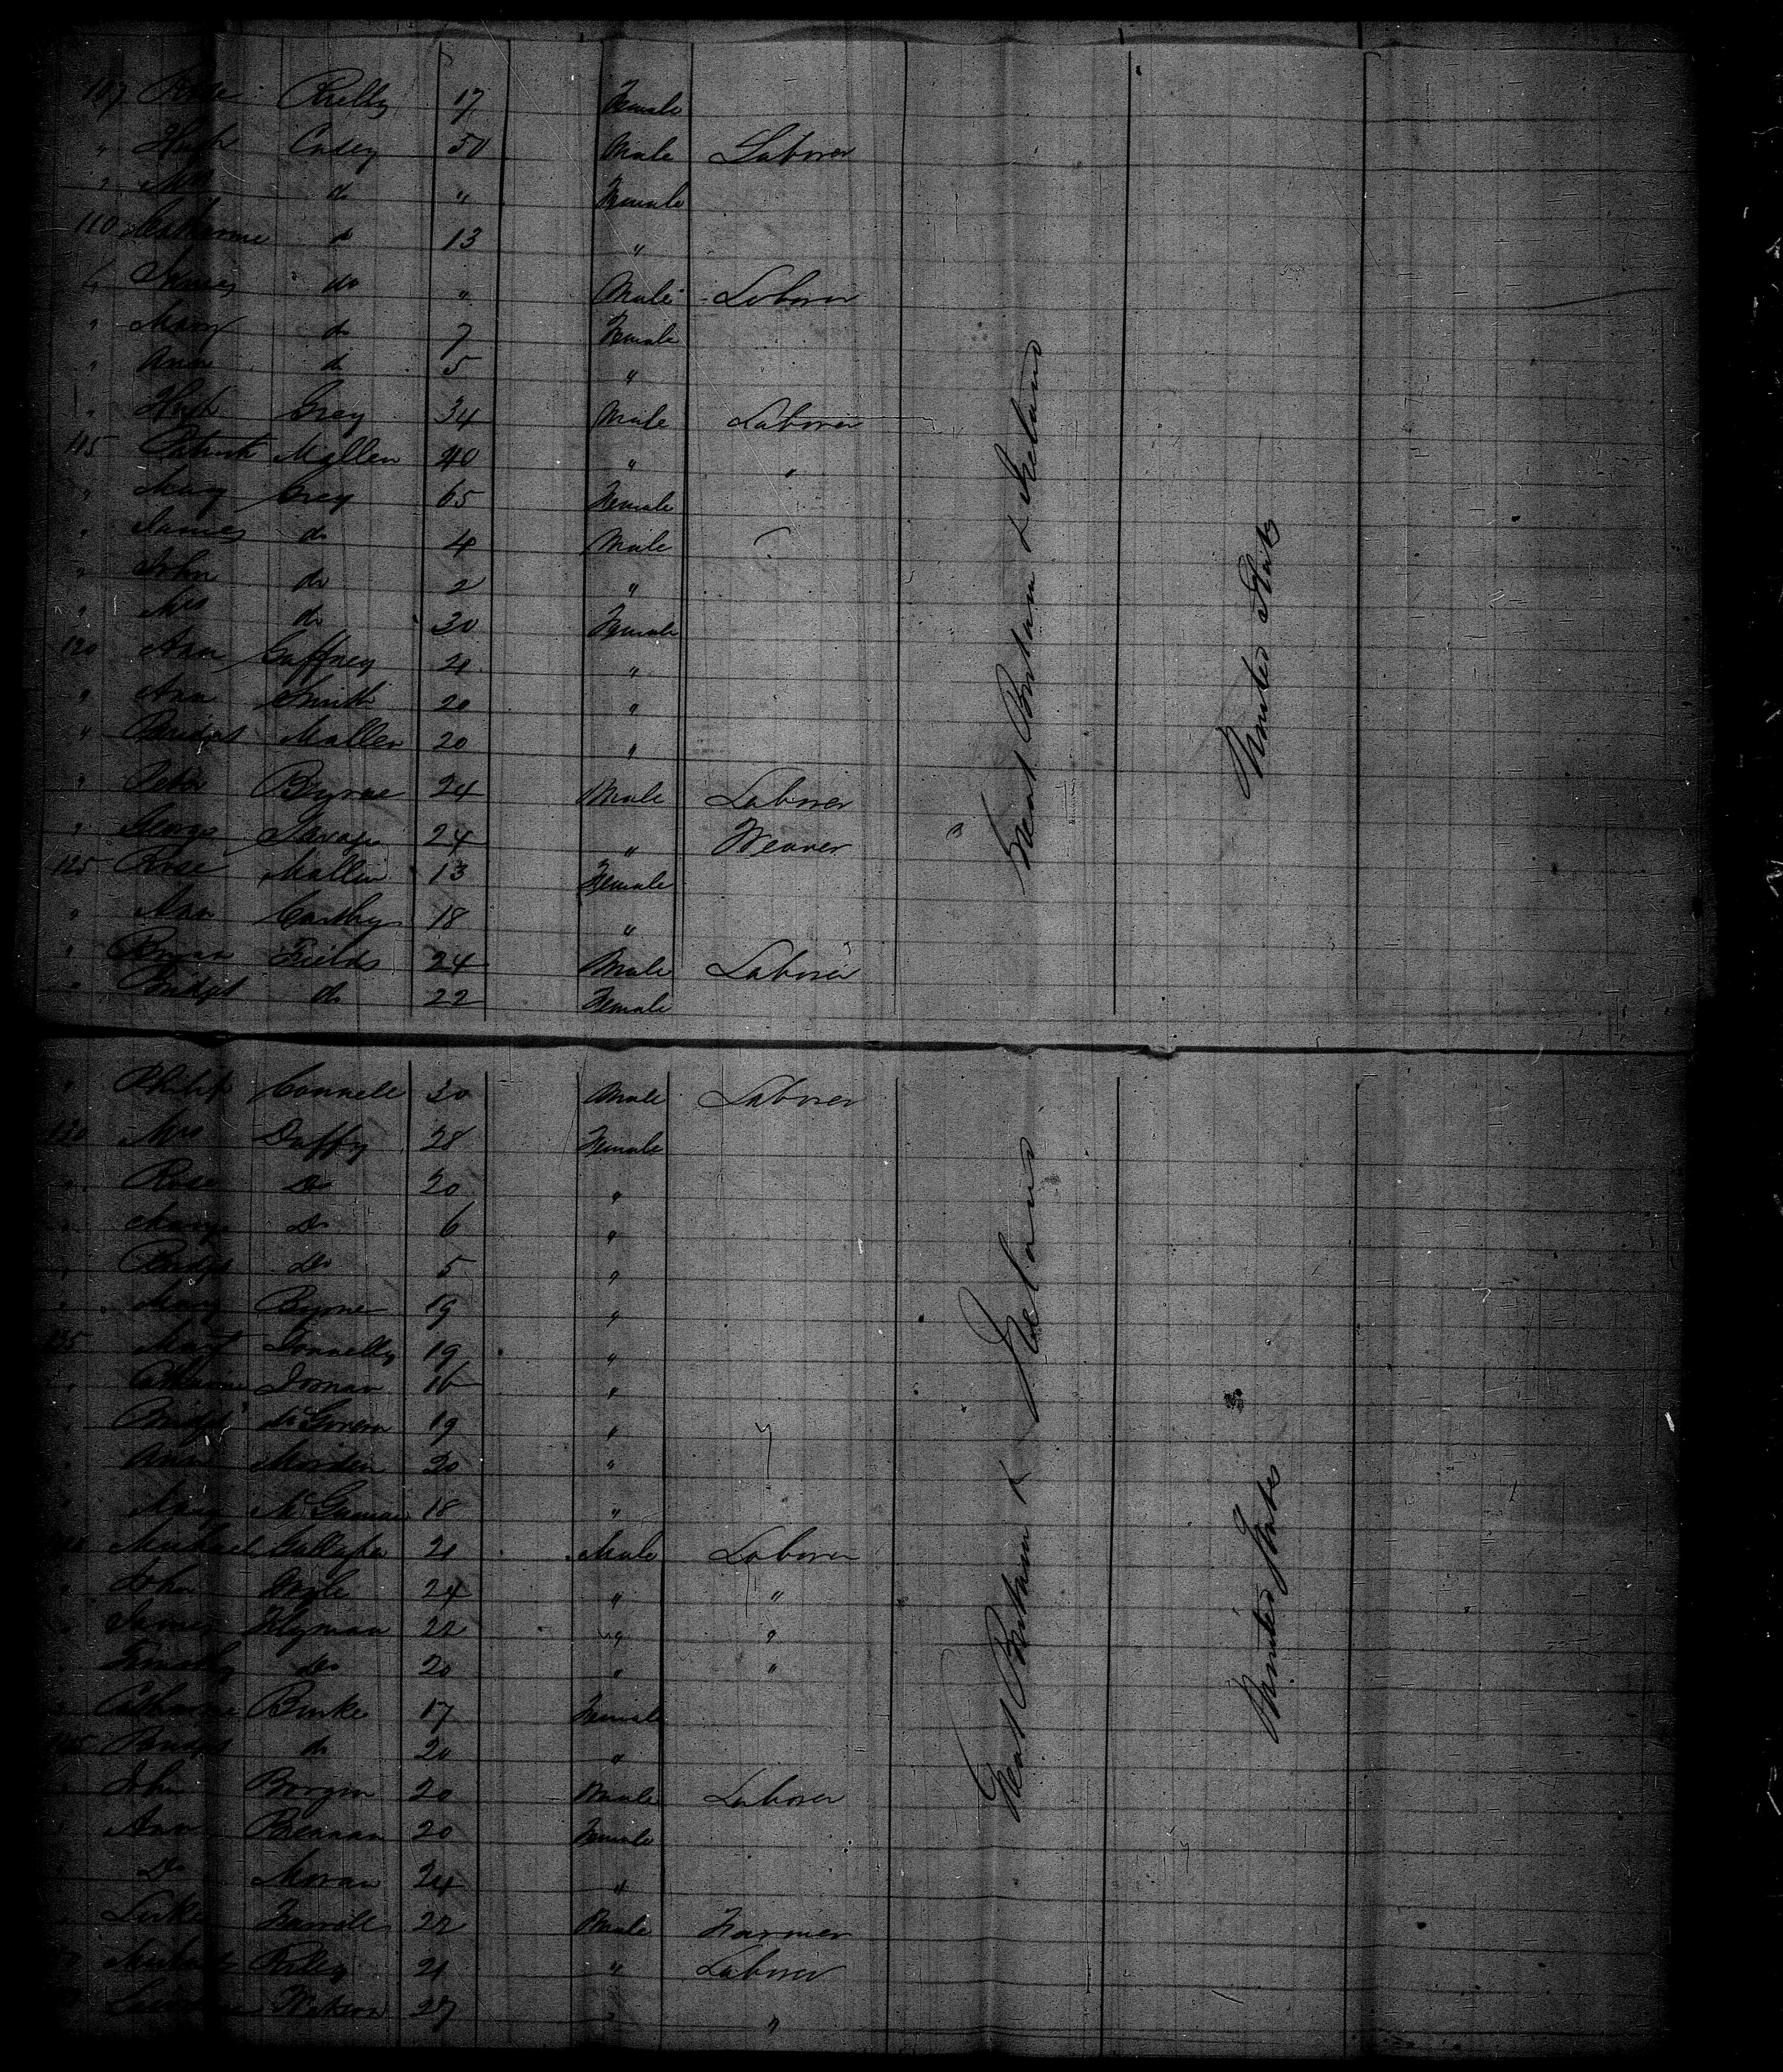 107 Rose Reilly 17 Female
" Hugh Casey 50 Male Laborer
" Mrs do " Female
110 Catherine do 13 "
" James do " Male Laborer
" Mary do 7 Female
" Ann do 5 "
" Hugh Grey 34 Male Laborer
115 Patrick Mallen 40 " "
" Mary Grey 65 Female
" James do 4 Male
" John do 2 "
" Mrs do 30 Female
120 Ann Gaffney 21 "
" Ann Smith 20 "
" Bridget Mallen 20 "
" Peter Byrne 24 Male Laborer
" George Savage 24 " Weaver
125 Rose Mallen 13 Female
" Ann Carthy 18 "
" Bryan Fields 24 Male Laborer
" Bridget do 22 Female
Great Britain & Ireland
United States
" Philip Connell 30 Male Laborer
130 Mrs Duffy 28 Female
" Rose Do 20 "
" Mary Do 6 "
" Bridget Do 5 "
" Mary Byrne 19 "
135 Mary Donnelly 19 "
" Catharine Dornan 16 "
" Bridget McGovern 19 "
Ann 20 "
" Mary 18 "
140 Michael 21 Male Laborer
" John 24 " "
" James 22 " "
" Timothy do 20 " "
" Catharine Burke 17 Female
145 Bridget do 20 "
" John 20 Male Laborer
" Ann Brennan 20 Female
" Do Moran 24 "
" Luke Farrell 22 Male Farmer
Michael Riley 21 " Laborer
27 " "
Great Britain & Ireland
United States